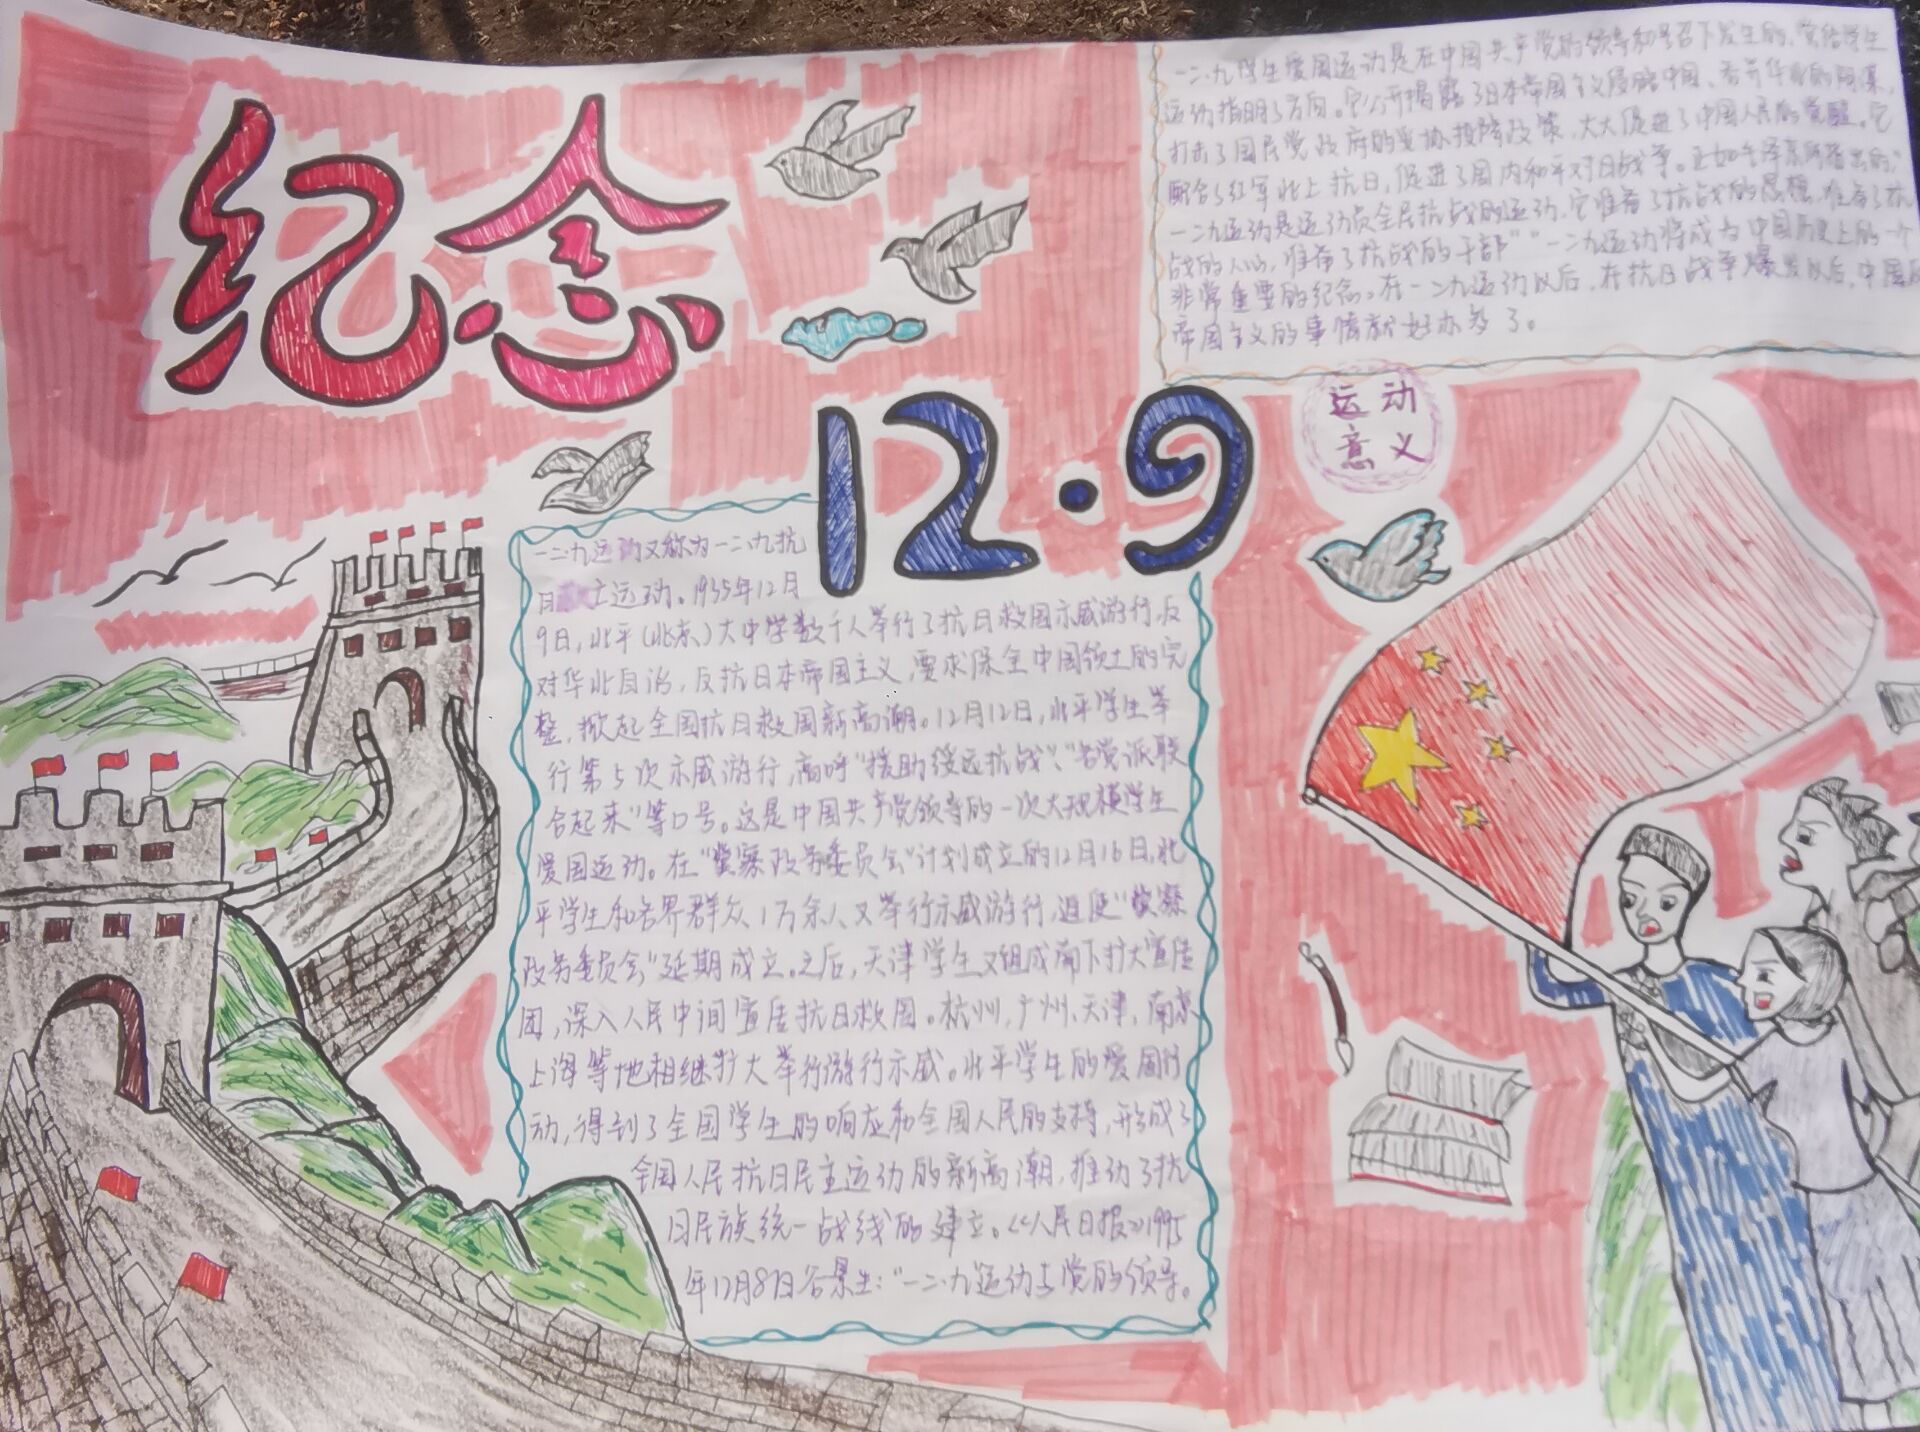 纪念
12·9
一二·九学生爱国运动是在中国共产党的领导和号召下发生的,党给学生
运动指明了方向。它公开揭露了日本帝国主义侵略中国、吞并华北的阴谋,
打击了国民党政府的妥协投降政策,大大促进了中国人民的觉醒。它
配合了红军北上抗日,促进了国内和平对日战争。正如毛泽东所指出的,
一二九运动是运动员全民抗战的运动,它准备了抗战的思想,准备了抗
战的人心,准备了抗战的干部""一二九运动将成为中国历史上的一个
非常重要的纪念。在一二九运动以后,在抗日战争爆发以后,中国
帝国主义的事情就好办多了。
运动
意义
一二·九运动又称为一二·九抗
日 主运动。1935年12月
9日,北平(北京)大中学数千人举行了抗日救国示威游行,反
对华北自治,反抗日本帝国主义,要求保全中国领土的完
整,掀起全国抗日救国新高潮。12月12日,北平学生举
行第5次示威游行,高呼"援助绥远抗战"、"各党派联
合起来"等口号。这是中国共产党领导的一次大规模学生
爱国运动。在" 政务委员会"计划成立的12月16日,北
平学生和各界群众1万余人又举行示威游行,迫使"
政务委员会"延期成立。之后,天津学生又组成南下扩大宣传
团,深入人民中间宣传抗日救国。杭州,广州、天津,南京
上海等地相继扩大举行游行示威。北平学生的爱国行
动,得到了全国学生的响应和全国人民的支持,形成了
全国人民抗日民主运动的新高潮,推动了抗
日民族统一战线的建立。<<人民日报>>1995
年12月8日谷景生:"一二·九运动与党的领导。